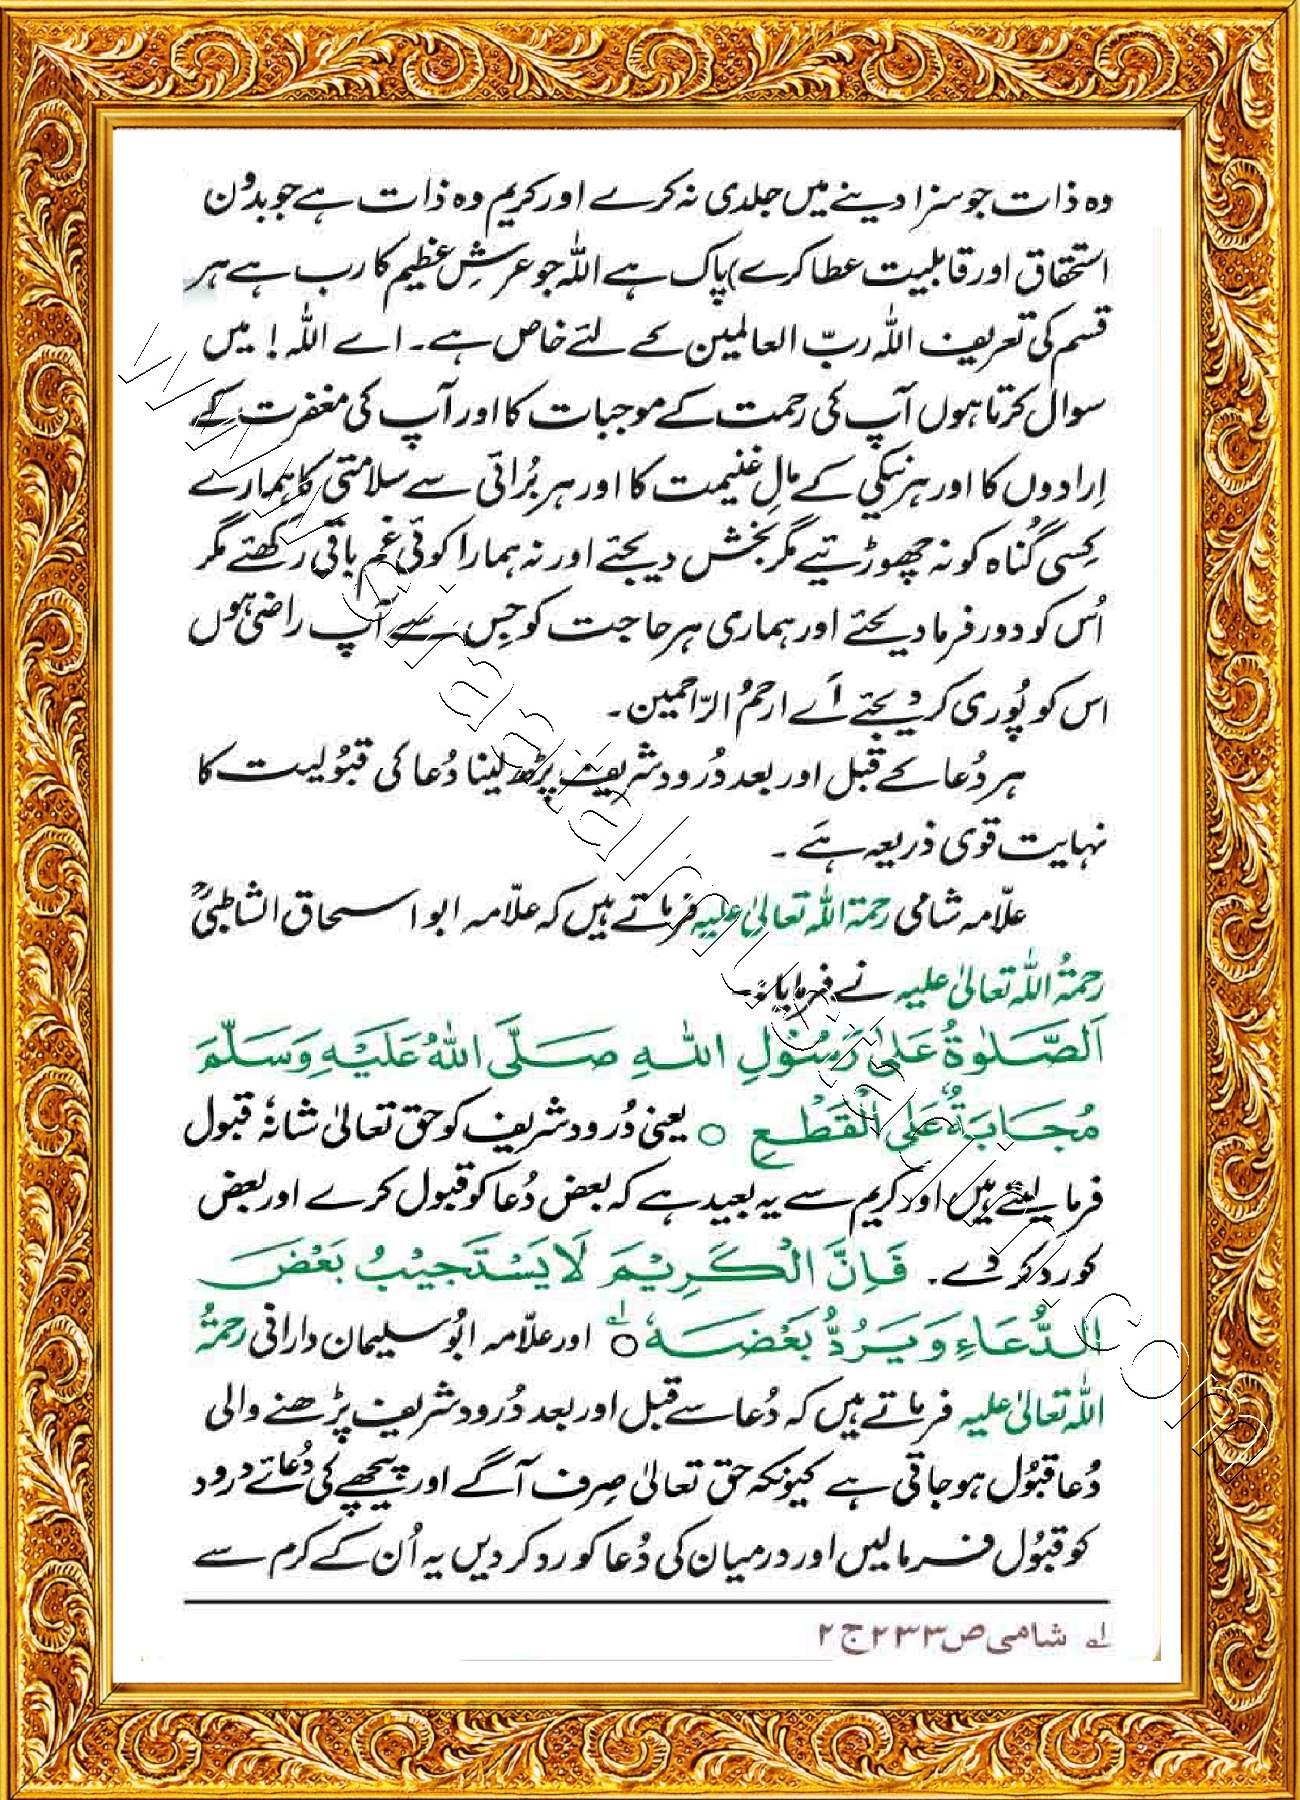 وہ ذات جو سزا دینے میں جلدی نہ کرے اور کریم وہ ذات ہے جو بدُون
استحقاق اور قابلیت عطا کرے) پاک ہے اللہ جو عرشِ عظیم کا رب ہے ہر
قسم کی تعریف اللہ ربّ العالمین کے لئے خاص ہے۔ اے اللہ! میں
سوال کرتا ہوں آپ کی رحمت کے موجبات کا اور آپ کی مغفرت کے
اِرادوں کا اور ہر نیکی کے مالِ غنیمت کا اور ہر بُرائی سے سلامتی کا ہمارے
کِسی گُناہ کو نہ چھوڑئیے مگر بخش دیجئے اور نہ ہمارا کوئی غم باقی رکھئے مگر
اُس کو دور فرما دیجئے اور ہماری ہر حاجت کو جِس سے آپ راضی ہوں
اس کو پُوری کر دیجئے اَے ارحمُ الرّاحمین۔
ہر دُعا کے قبل اور بعد دُرود شریف پڑھ لینا دُعا کی قبُولیت کا
نہایت قوی ذریعہ ہَے۔
علّامہ شامی رحمۃ اللہ تعالیٰ علیہ فرماتے ہیں کہ علّامہ ابو اسحاق الشاطبیؒ
رحمۃُ اللہ تعالیٰ علیہ نے فرمایا:۔
اَلصَّلٰوةُ عَلٰى رَسُوْلِ اللهِ صَلَّى اللهُ عَلَيْهِ وَسَلَّمَ
مُجَابَةٌ عَلَى الْقَطْعِ ○ یعنی دُرود شریف کو حق تعالیٰ شانہٗ قبول
فرما لیتے ہیں اور کریم سے یہ بعید ہے کہ بعض دُعا کو قبول کرے اور بعض
کو رد کر دے۔ فَإِنَّ الْكَرِيْمَ لَا يَسْتَجِيْبُ بَعْضَ
الدُّعَاءِ وَيَرُدُّ بَعْضَهٗ ○ لہ اور علّامہ ابُو سلیمان دارانی رحمۃُ
اللہ تعالیٰ علیہ فرماتے ہیں کہ دُعا سے قبل اور بعد دُرود شریف پڑھنے والی
دُعا قبُول ہو جاتی ہے کیونکہ حق تعالیٰ صِرف آگے اور پیچھے کی دُعائے درود
کو قبُول فرمالیں اور درمیان کی دُعا کو رد کر دیں یہ اُن کے کرم سے
لہ شامی ص ۲۳۳ ج ۲
www.siraatalmustaqiim.com